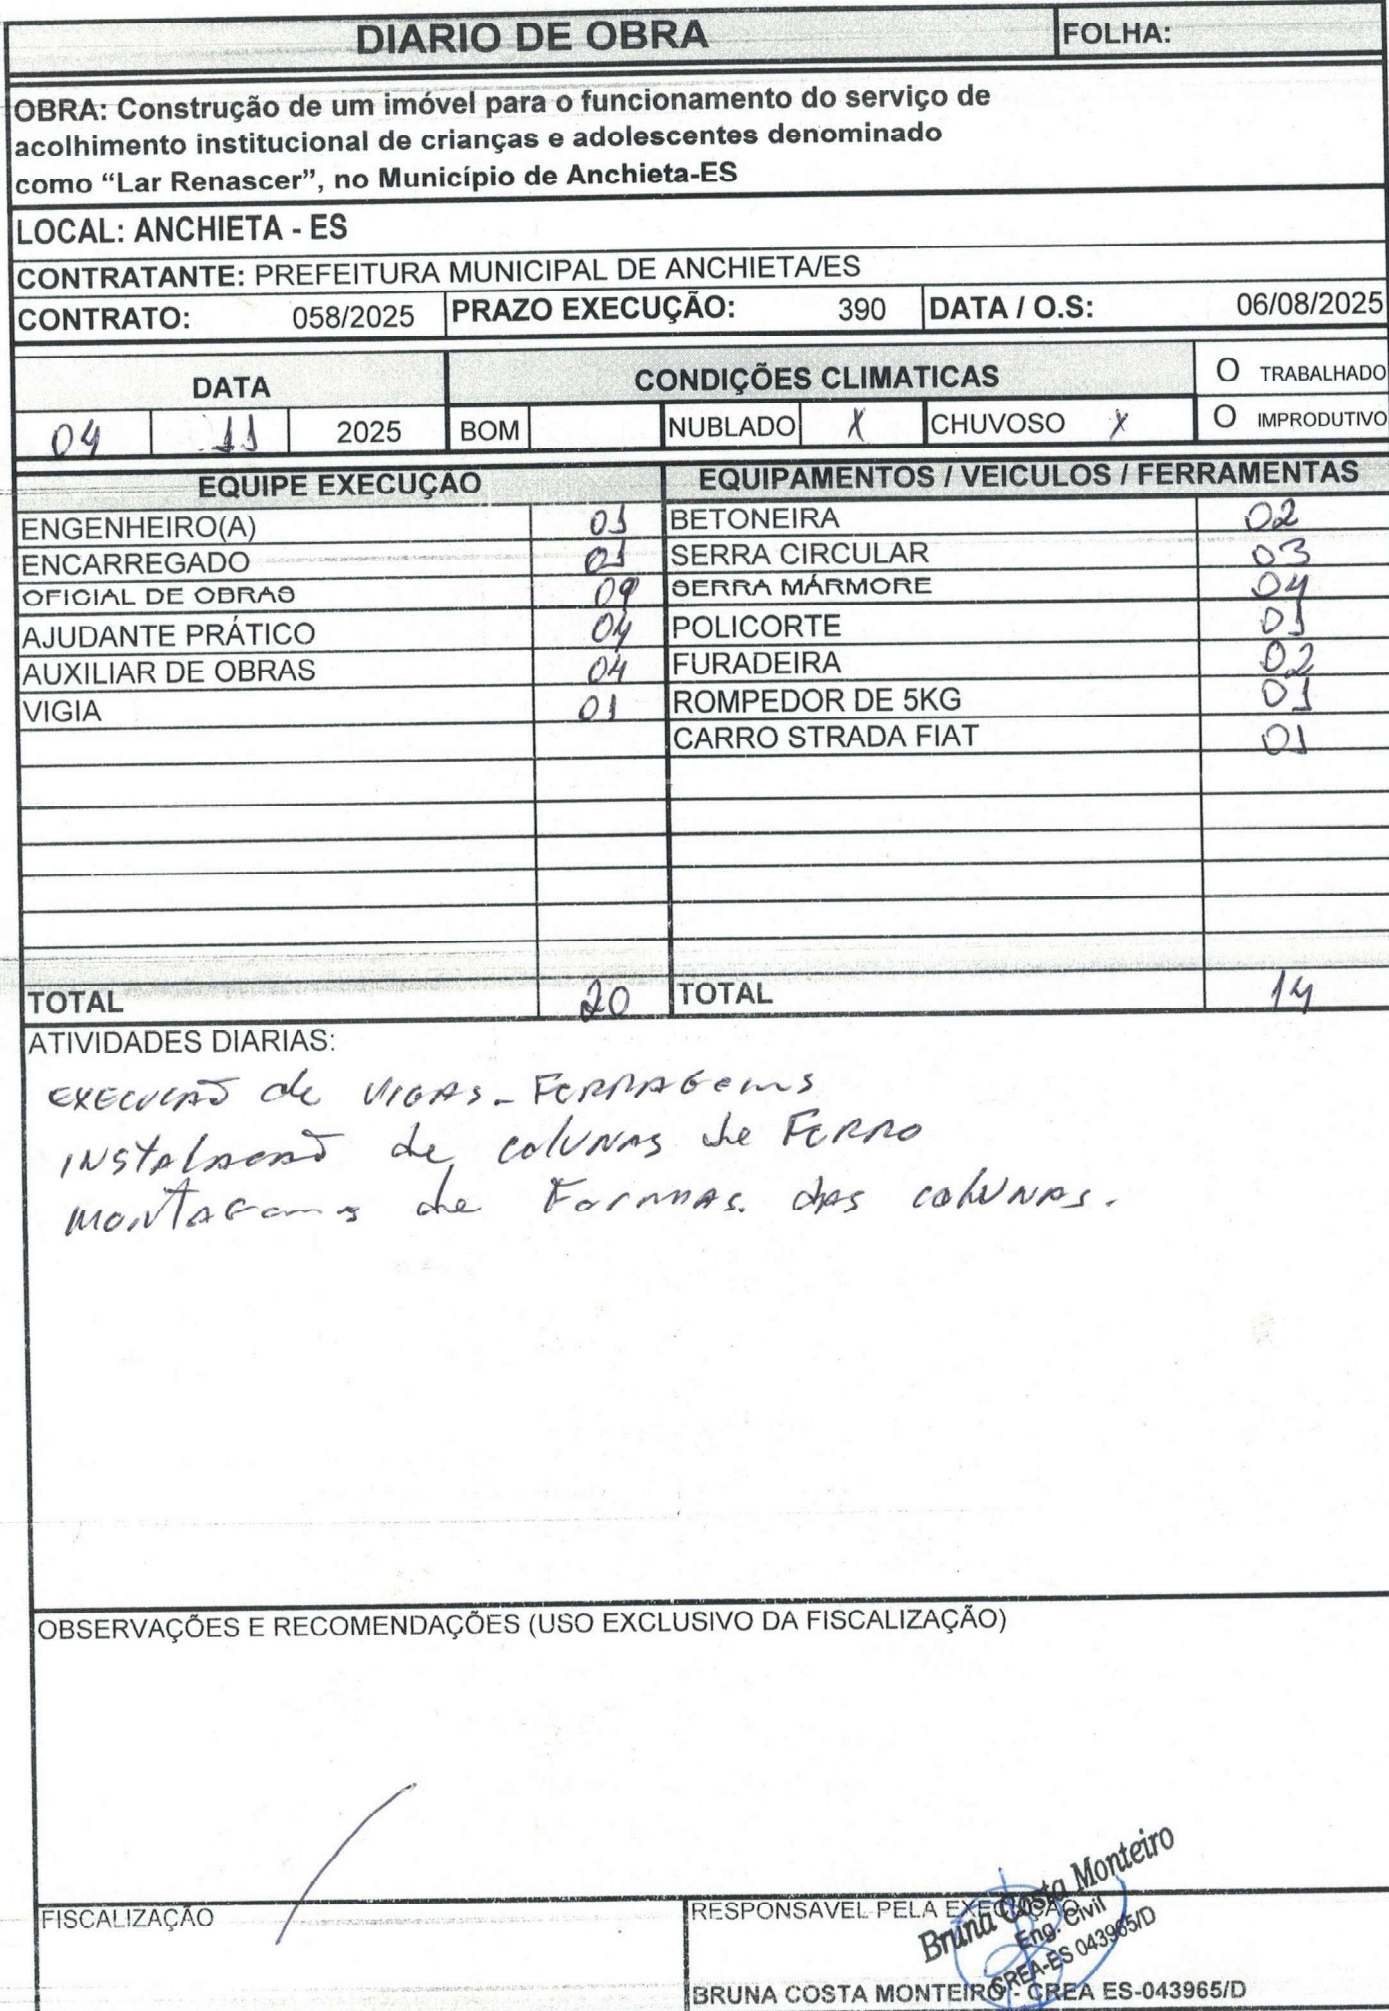 DIARIO DE OBRA FOLHA:
OBRA: Construção de um imóvel para o funcionamento do serviço de
acolhimento institucional de crianças e adolescentes denominado
como “Lar Renascer”, no Município de Anchieta-ES
LOCAL: ANCHIETA - ES
CONTRATANTE: PREFEITURA MUNICIPAL DE ANCHIETA/ES
CONTRATO: 058/2025 PRAZO EXECUÇÃO: 390 DATA / O.S: 06/08/2025
DATA CONDIÇÕES CLIMATICAS O TRABALHADO
04 11 2025 BOM NUBLADO X CHUVOSO X O IMPRODUTIVO
EQUIPE EXECUÇAO EQUIPAMENTOS / VEICULOS / FERRAMENTAS
ENGENHEIRO(A) 01 BETONEIRA 02
ENCARREGADO 01 SERRA CIRCULAR 03
OFICIAL DE OBRAS 09 SERRA MÁRMORE 04
AJUDANTE PRÁTICO 04 POLICORTE 01
AUXILIAR DE OBRAS 04 FURADEIRA 02
VIGIA 01 ROMPEDOR DE 5KG 01
CARRO STRADA FIAT 01
TOTAL 20 TOTAL 14
ATIVIDADES DIARIAS:
EXECUÇÃO de VIGAS - FERRAGENS
INSTALAÇÃO de colUNAS de FERRO
MONTAGENS de FORMAS das colUNAS.
OBSERVAÇÕES E RECOMENDAÇÕES (USO EXCLUSIVO DA FISCALIZAÇÃO)
FISCALIZAÇÃO
RESPONSAVEL PELA EXECUÇÃO
Bruna Costa Monteiro
Eng. Civil
CREA-ES 043965/D
BRUNA COSTA MONTEIRO - CREA ES-043965/D